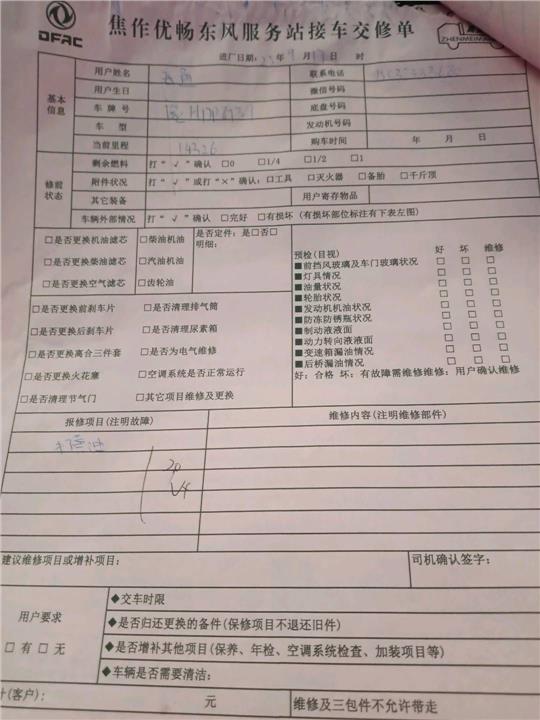 DFAC 焦作优畅东风服务站接车交修单 ZHENMEIMA
进厂日期: 年 9 月 日 时
基本信息
用户姓名 联系电话
用户生日 微信号码
车牌号 底盘号码
车 型 发动机号码
当前里程 14326 购车时间 年 月 日
修前状态
剩余燃料 打“√”确认 □0 □1/4 □1/2 □1
附件状况 打“√”或打“×”确认:□工具 □灭火器 □备胎 □千斤顶
其它装备 用户寄存物品
车辆外部情况 打“√”确认 □完好 □有损坏(有损坏部位标注有下表左图)
□是否更换机油滤芯 □柴油机油 是否定件:是□否□
□是否更换柴油滤芯 □汽油机油 明细:
□是否更换空气滤芯 □齿轮油
□是否更换前刹车片 □是否清理排气筒
□是否更换后刹车片 □是否清理尿素箱
□是否更换离合三件套 □是否为电气维修
□是否更换火花塞 □空调系统是否正常运行
□是否清理节气门 □其它项目维修及更换
预检(目视) 好 坏 维修
■前挡风玻璃及车门玻璃状况 □ □ □
■灯具情况 □ □ □
■油量状况 □ □ □
■轮胎状况 □ □ □
■发动机机油状况 □ □ □
■防冻防锈瓶状况 □ □ □
■制动液液面 □ □ □
■动力转向液液面 □ □ □
■变速箱漏油情况 □ □ □
■后桥漏油情况 □ □ □
好:合格 坏:有故障需维修维修:用户确认维修
报修项目(注明故障) 维修内容(注明维修部件)
建议维修项目或增补项目: 司机确认签字:
用户要求
□有 □无
◆交车时限
◆是否归还更换的备件(保修项目不退还旧件)
◆是否增补其他项目(保养、年检、空调系统检查、加装项目等)
◆车辆是否需要清洁:
计(客户): 元 维修及三包件不允许带走